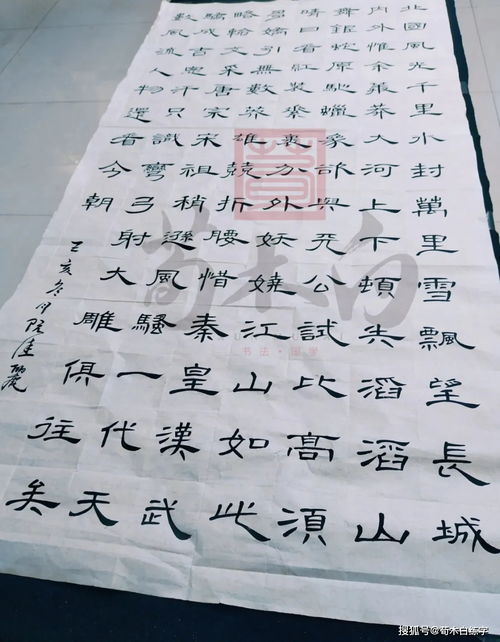 北國風光千里氷封萬里雪飄望長城
內外惟余莽莽大河上下頓失滔滔山
舞銀蛇原馳蠟象欲與天公試比高須
晴日看紅裝素裹分外妖嬈江山如此
多嬌引無數英雄競折腰惜秦皇漢武
略輸文采唐宗宋祖稍遜風騷一代天
驕成吉思汗只識彎弓射大雕俱往矣
數風流人物還看今朝
亥冬月
荀木白
书法·国学
搜狐号@荀木白练字